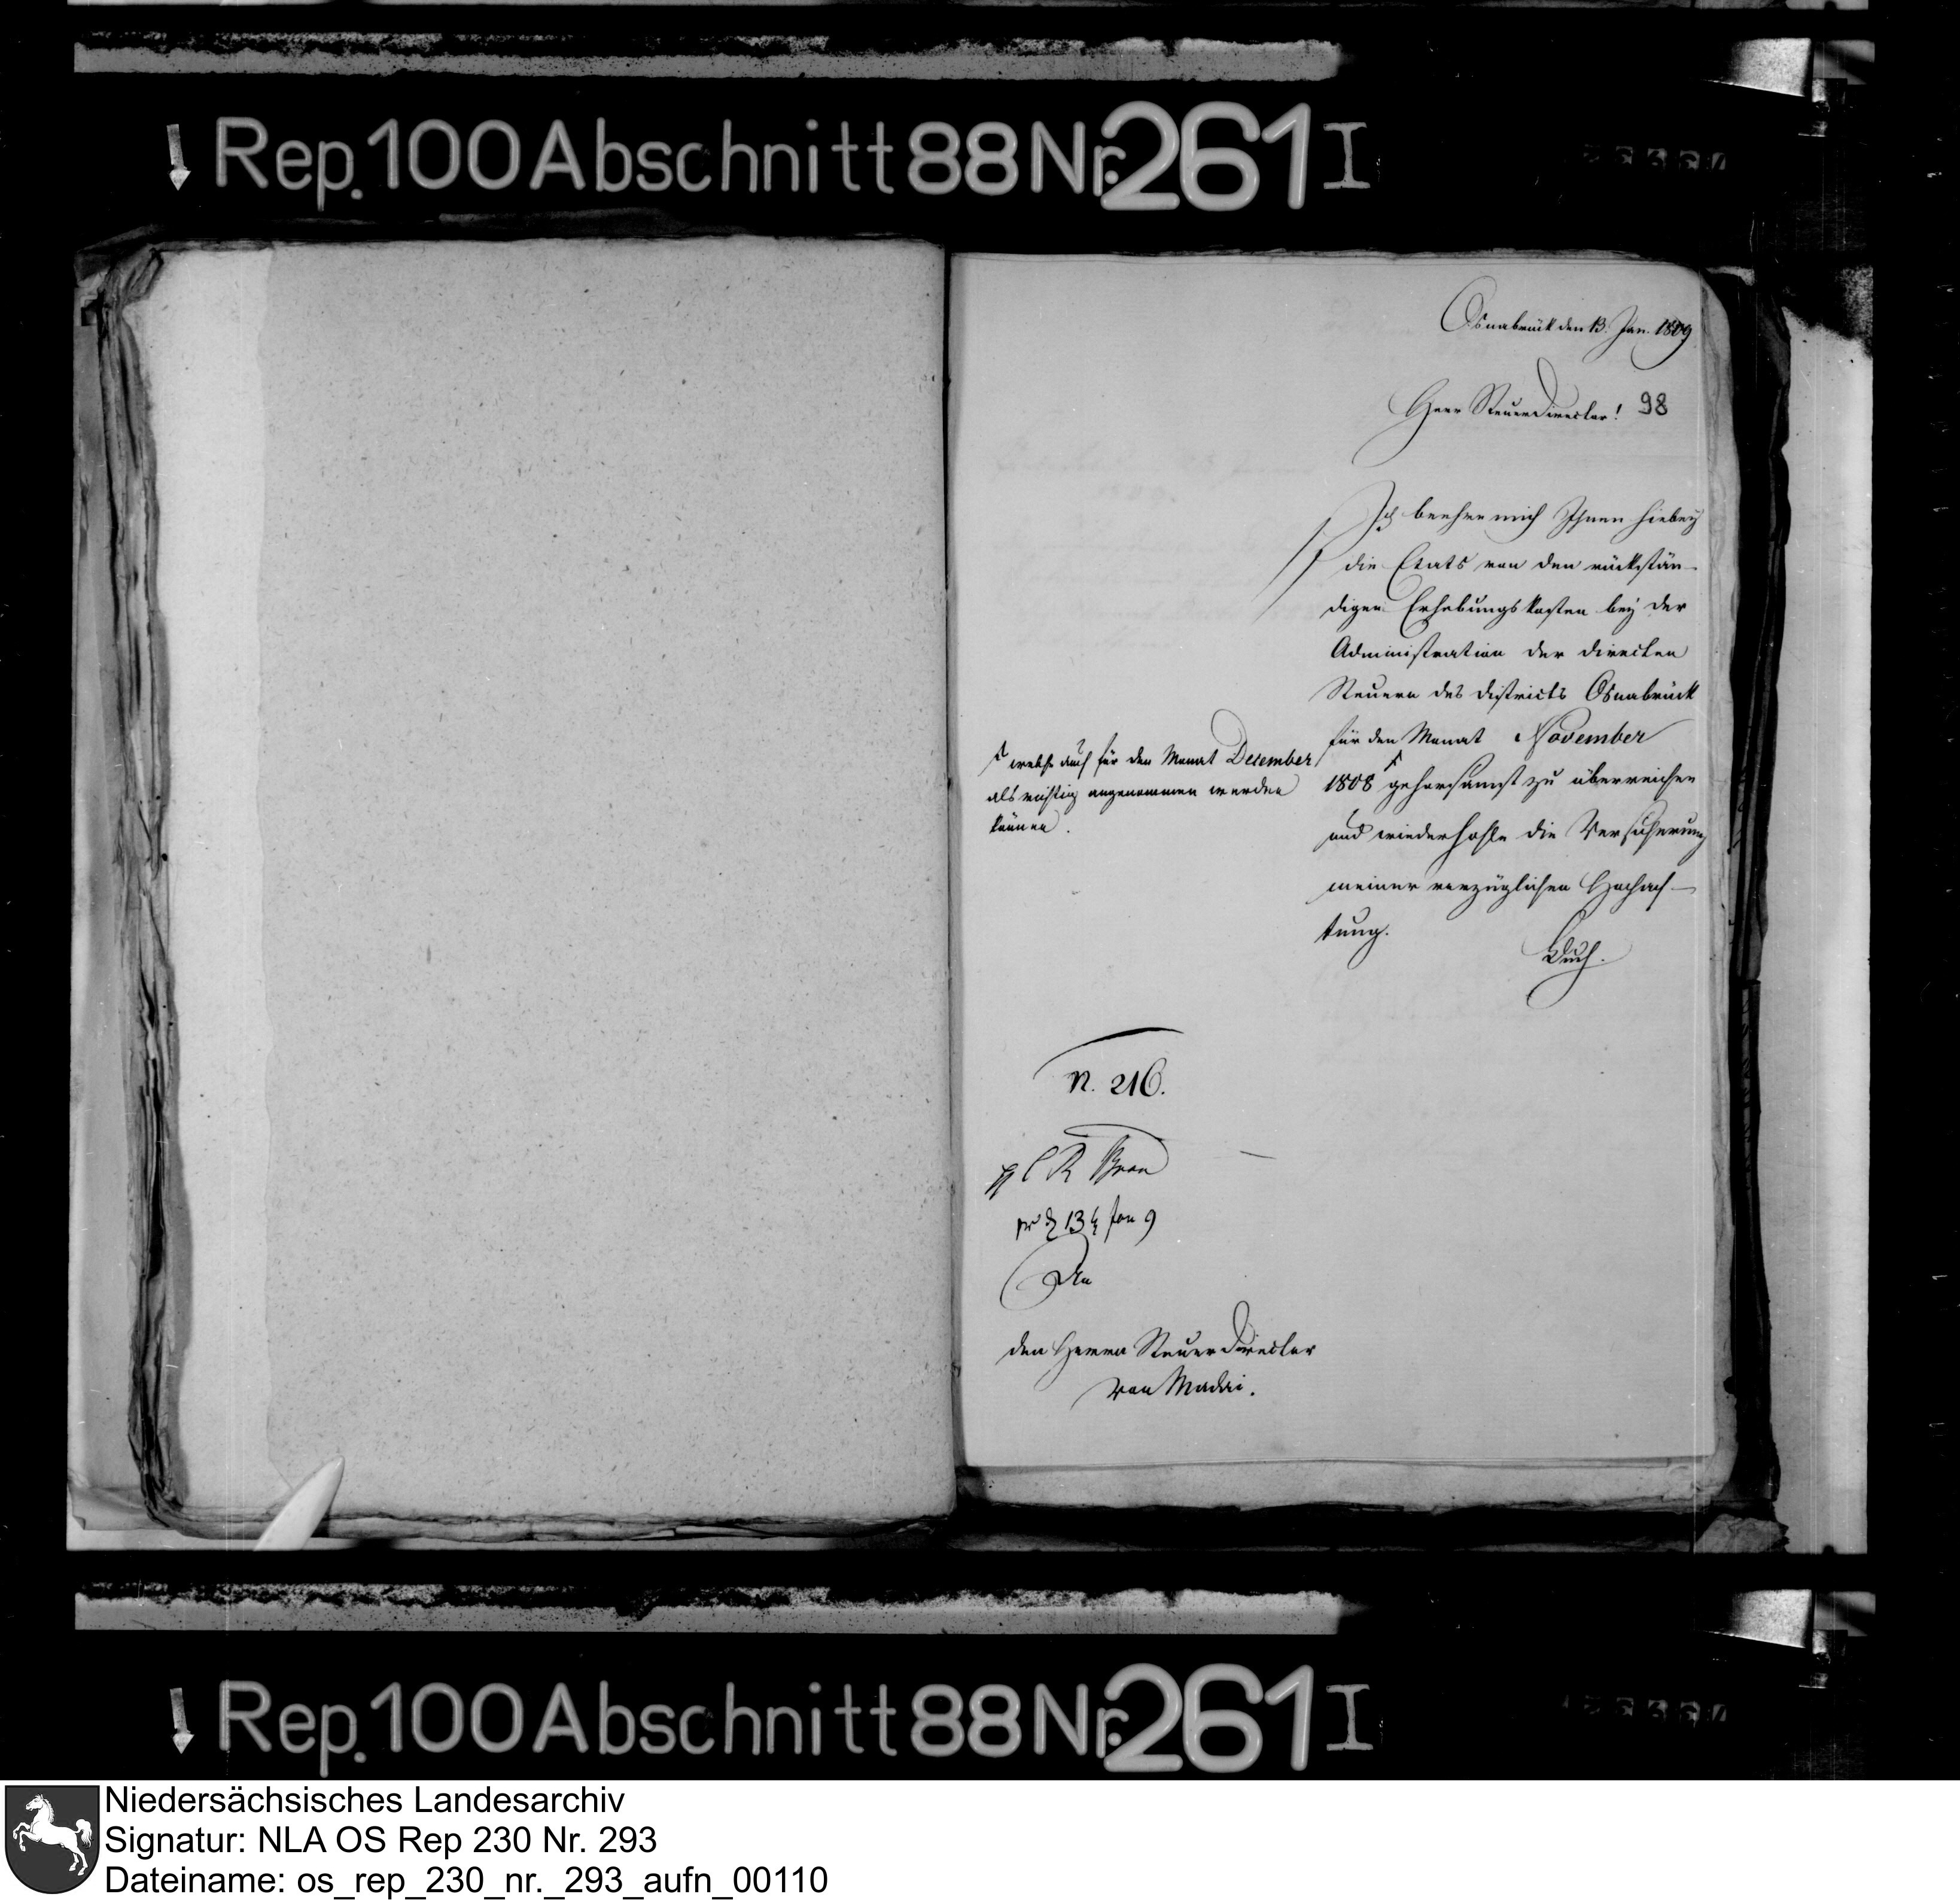 Rep. 100 Abschnitt 88 Nr. 261 I
Osnabrück den 13. Jan. 1809
Herr Steuerdirector!
98
Ich beehre mich Ihnen hiebey
die Etats von den rückstän-
digen Erhebungskosten bey der
Administration der directen
Steuern des Districts Osnabrück
für den Monat November
1808 gehorsamst zu überreichen
und wiederhohle die Versicherung
meiner vorzüglichen Hochach-
tung.
welche auch für den Monat December
als richtig angenommen werden
können.
N. 216.
13 Jan 9
An
den Herrn Steuerdirector
von Madai.
Rep. 100 Abschnitt 88 Nr. 261 I
Niedersächsisches Landesarchiv
Signatur: NLA OS Rep 230 Nr. 293
Dateiname: os_rep_230_nr._293_aufn_00110